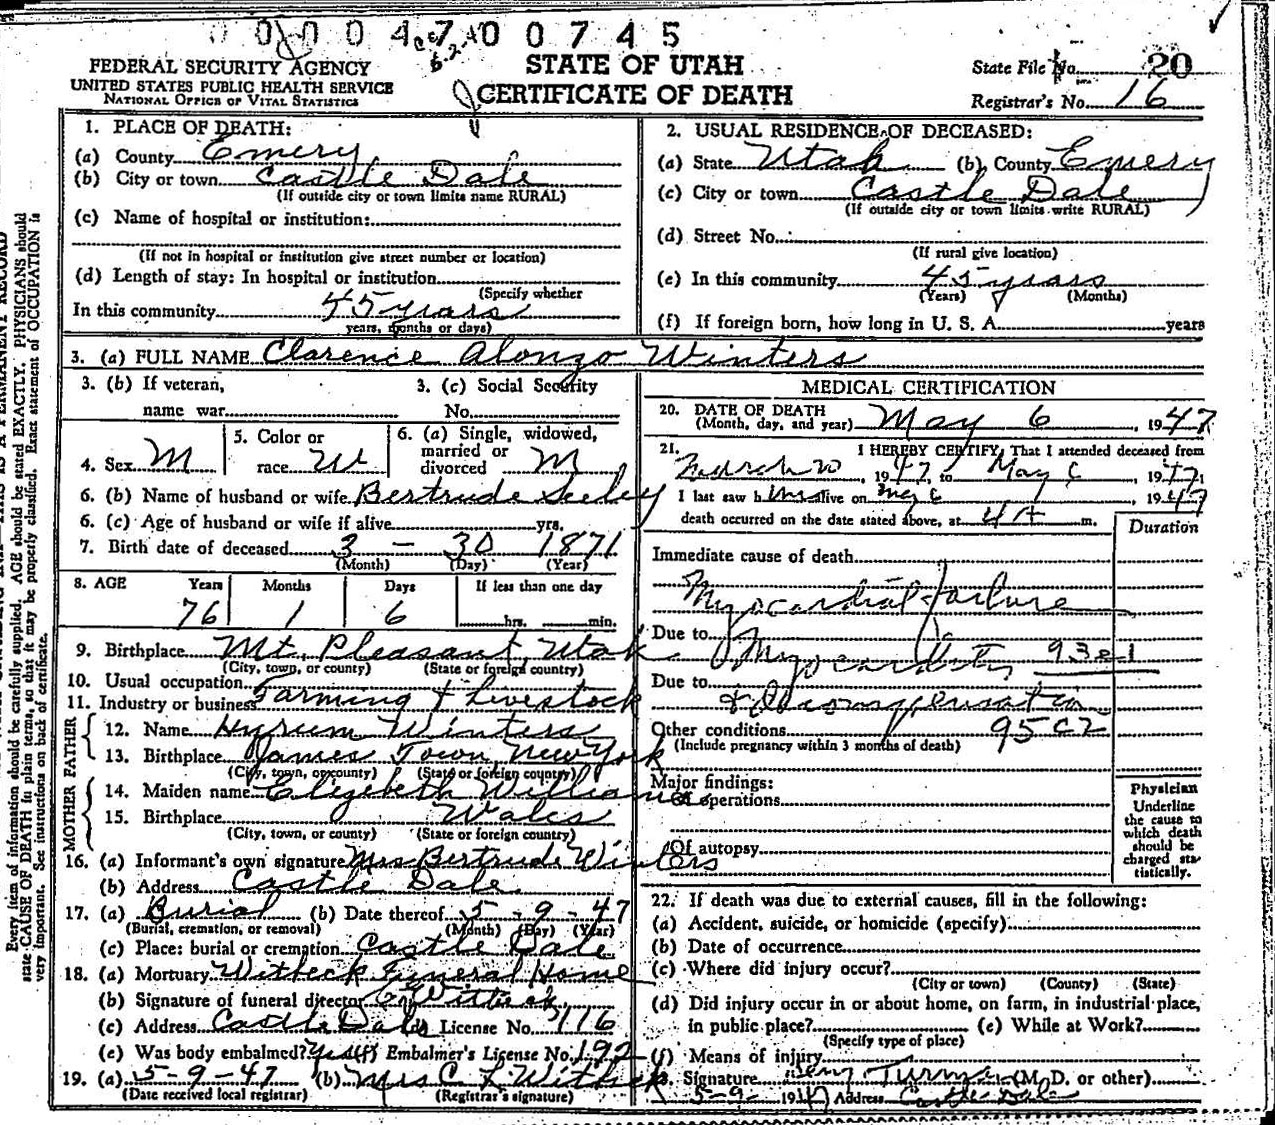 0 0 0 4 7 0 0 7 4 5
FEDERAL SECURITY AGENCY
UNITED STATES PUBLIC HEALTH SERVICE
NATIONAL OFFICE OF VITAL STATISTICS
STATE OF UTAH
CERTIFICATE OF DEATH
State File No. 20
Registrar's No. 16
1. PLACE OF DEATH:
(a) County Emery
(b) City or town Castle Dale
(If outside city or town limits name RURAL)
(c) Name of hospital or institution:
(If not in hospital or institution give street number or location)
(d) Length of stay: In hospital or institution
(Specify whether
In this community 45 years
years, months or days)
2. USUAL RESIDENCE OF DECEASED:
(a) State Utah (b) County Emery
(c) City or town Castle Dale
(If outside city or town limits write RURAL)
(d) Street No.
(If rural give location)
(e) In this community 45 years
(Years) (Months)
(f) If foreign born, how long in U. S. A. years
3. (a) FULL NAME Clarence Alonzo Winters
3. (b) If veteran,
name war
3. (c) Social Security
No.
4. Sex M
5. Color or
race W
6. (a) Single, widowed,
married or
divorced M
6. (b) Name of husband or wife Bertrude Seeley
6. (c) Age of husband or wife if alive yrs.
7. Birth date of deceased 3 - 30 1871
(Month) (Day) (Year)
8. AGE Years Months Days If less than one day
76 1 6 hrs. min.
9. Birthplace Mt. Pleasant Utah
(City, town, or county) (State or foreign country)
10. Usual occupation
11. Industry or business Farming & Livestock
FATHER
12. Name Hyrum Winters
13. Birthplace James Town, New York
(City, town, or county) (State or foreign country)
MOTHER
14. Maiden name Elizebeth Williams
15. Birthplace Wales
(City, town, or county) (State or foreign country)
16. (a) Informant's own signature Mrs Bertrude Winters
(b) Address Castle Dale
17. (a) Burial (b) Date thereof 5 - 9 - 47
(Burial, cremation, or removal) (Month) (Day) (Year)
(c) Place: burial or cremation Castle Dale
18. (a) Mortuary Witbeck Funeral Home
(b) Signature of funeral director Witbeck
(c) Address Castle Dale (d) License No. 116
(e) Was body embalmed? Yes (f) Embalmer's License No. 192
19. (a) 5-9-47 (b) Mrs C L Witbeck
(Date received local registrar) (Registrar's signature)
MEDICAL CERTIFICATION
20. DATE OF DEATH
(Month, day, and year) May 6, 1947
21. I HEREBY CERTIFY, That I attended deceased from
March 20, 1947, to May 6, 1947,
I last saw him alive on May 6, 1947
death occurred on the date stated above, at 4 A m.
Duration
Immediate cause of death
Myocardial failure
Due to Myocarditis 93
Due to
& Decompensation
Other conditions 95C2
(Include pregnancy within 3 months of death)
Major findings:
Of operations
Of autopsy
Physician
Underline
the cause to
which death
should be
charged sta-
tistically.
22. If death was due to external causes, fill in the following:
(a) Accident, suicide, or homicide (specify)
(b) Date of occurrence
(c) Where did injury occur?
(City or town) (County) (State)
(d) Did injury occur in or about home, on farm, in industrial place,
in public place? (e) While at Work?
(Specify type of place)
(f) Means of injury
Signature Turman (M. D. or other)
5-9- 1947 Address Castle Dale
Every item of information should be carefully supplied. AGE should be stated EXACTLY. PHYSICIANS should
state CAUSE OF DEATH in plain terms, so that it may be properly classified. Exact statement of OCCUPATION is
very important. See instructions on back of certificate.